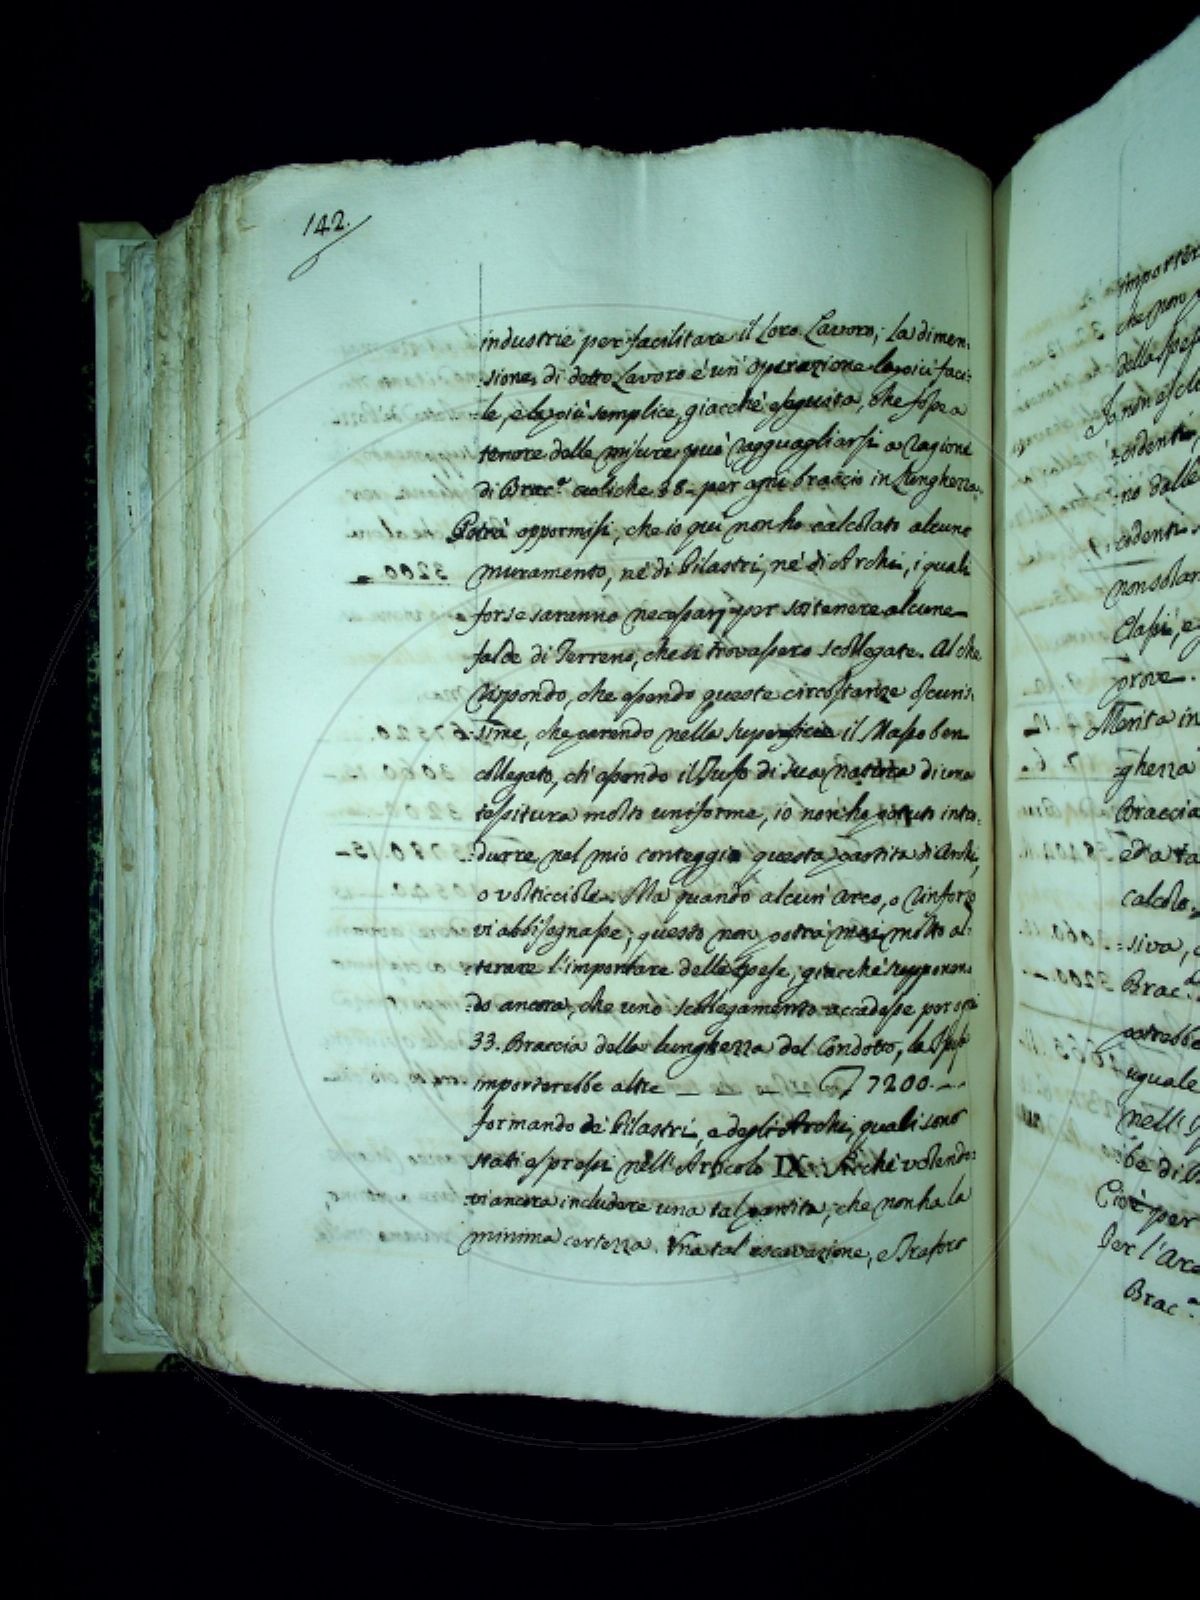 142.
industrie per facilitare il loro Lavoro; La dimen:
:sione di detto Lavoro è un' operazione la più faci:
:le, e la più semplice, giacchè eseguita, che fosse a
tenore delle misure può ragguagliarsi a ragione
di Brac.a cubiche 38 per ogni braccio in lunghezza.
Potrà oppormisi, che io quì non ho calcolato alcuno
muramento, nè di Pilastri, nè di Archi, i quali
forse saranno necessarj per sostenere alcune
falde di Terreno, che si trovassero scollegate. Al che
rispondo, che essendo queste circostanze oscuris:
:sime, che avendo nella superficie il Masso ben
collegato, ed essendo il Tufo di sua natura di una
tessitura molto uniforme, io non ho potuto intro:
:durre nel mio conteggio questa partita di Archi,
o volticciole. Ma quando alcun' arco, o rinforzo
vi abbisognasse; questo non potrà mai molto al:
:terare l'importare delle spese, giacchè supponen:
:do ancora, che uno scollegamento accadesse per ogni
33. Braccia della lunghezza del Condotto, la Spesa
importerebbe altre 7200.
formando de' Pilastri, e degli Archi, quali sono
stati espressi nell' Articolo IX: Sicchè volendo:
:vi ancora includere una tal partita, che non ha la
minima certezza. Una tal escavazione, e Traforo
importer
che non
della spe
cidenti,
:no dalle
non solam
Classi, e
prove.
Merita in
:ghezza
Braccia
calcolo,
:siva,
Brac.a
potrebbe
uguale
nell'
:be di
Cioè per
Per l'Arc
Brac.a